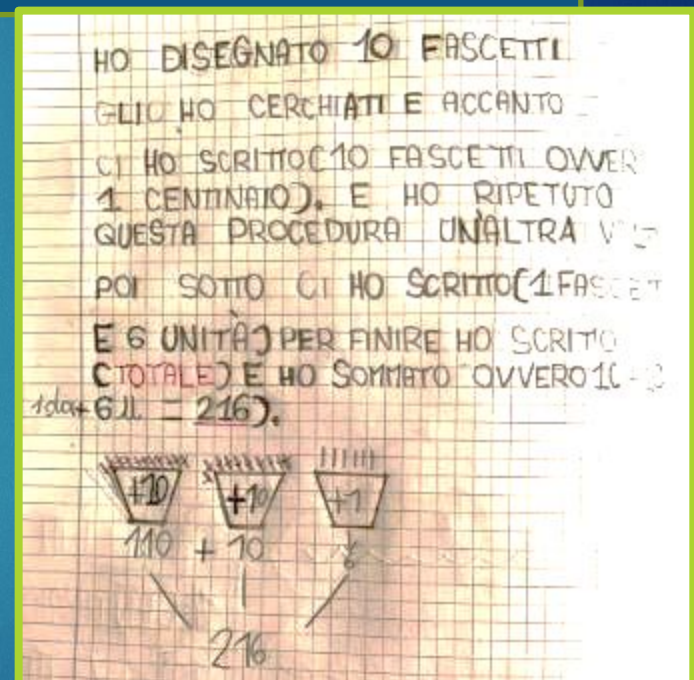 HO DISEGNATO 10 FASCETTI
GLIU HO CERCHIATI E ACCANTO
CI HO SCRITTO(10 FASCETTI OVVER
1 CENTINAIO). E HO RIPETUTO
QUESTA PROCEDURA UN'ALTRA
POI SOTTO CI HO SCRITTO(1 FASCET
E 6 UNITÀ) PER FINIRE HO SCRITTO
(TOTALE) E HO SOMMATO OVVERO
1da+6U. = 216).
+10 +10 +1
110 + 10 6
216